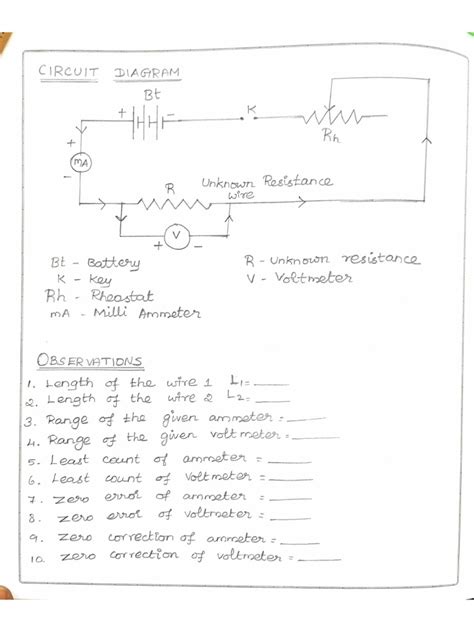 CIRCUIT DIAGRAM
Bt
+ -
K
Rh
+
mA
-
R
Unknown Resistance
wire
V
+ -
Bt - Battery
K - Key
Rh - Rheostat
mA - Milli Ammeter
R - Unknown resistance
V - Voltmeter
OBSERVATIONS
1. Length of the wire 1 L1=
2. Length of the wire 2 L2=
3. Range of the given ammeter =
4. Range of the given voltmeter =
5. Least count of ammeter =
6. Least count of voltmeter =
7. zero error of ammeter =
8. zero error of voltmeter =
9. zero correction of ammeter =
10. zero correction of voltmeter =